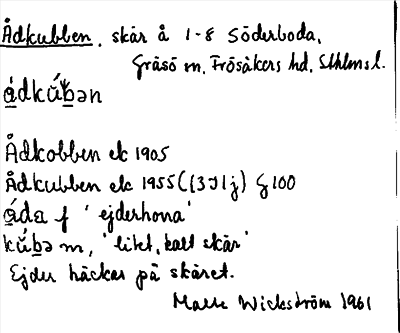 Ådkubben, skär å 1-8 Söderboda,
Gräsö sn, Frösåkers hd, Sthlms l.
ádkúbən
Ådkobben ek 1905
Ådkubben ek 1955 (13I1j) G 100
áda f 'ejderhona'
kúbə m, 'litet, kalt skär'
Ejder häckar på skäret.
Mats Wickström 1961